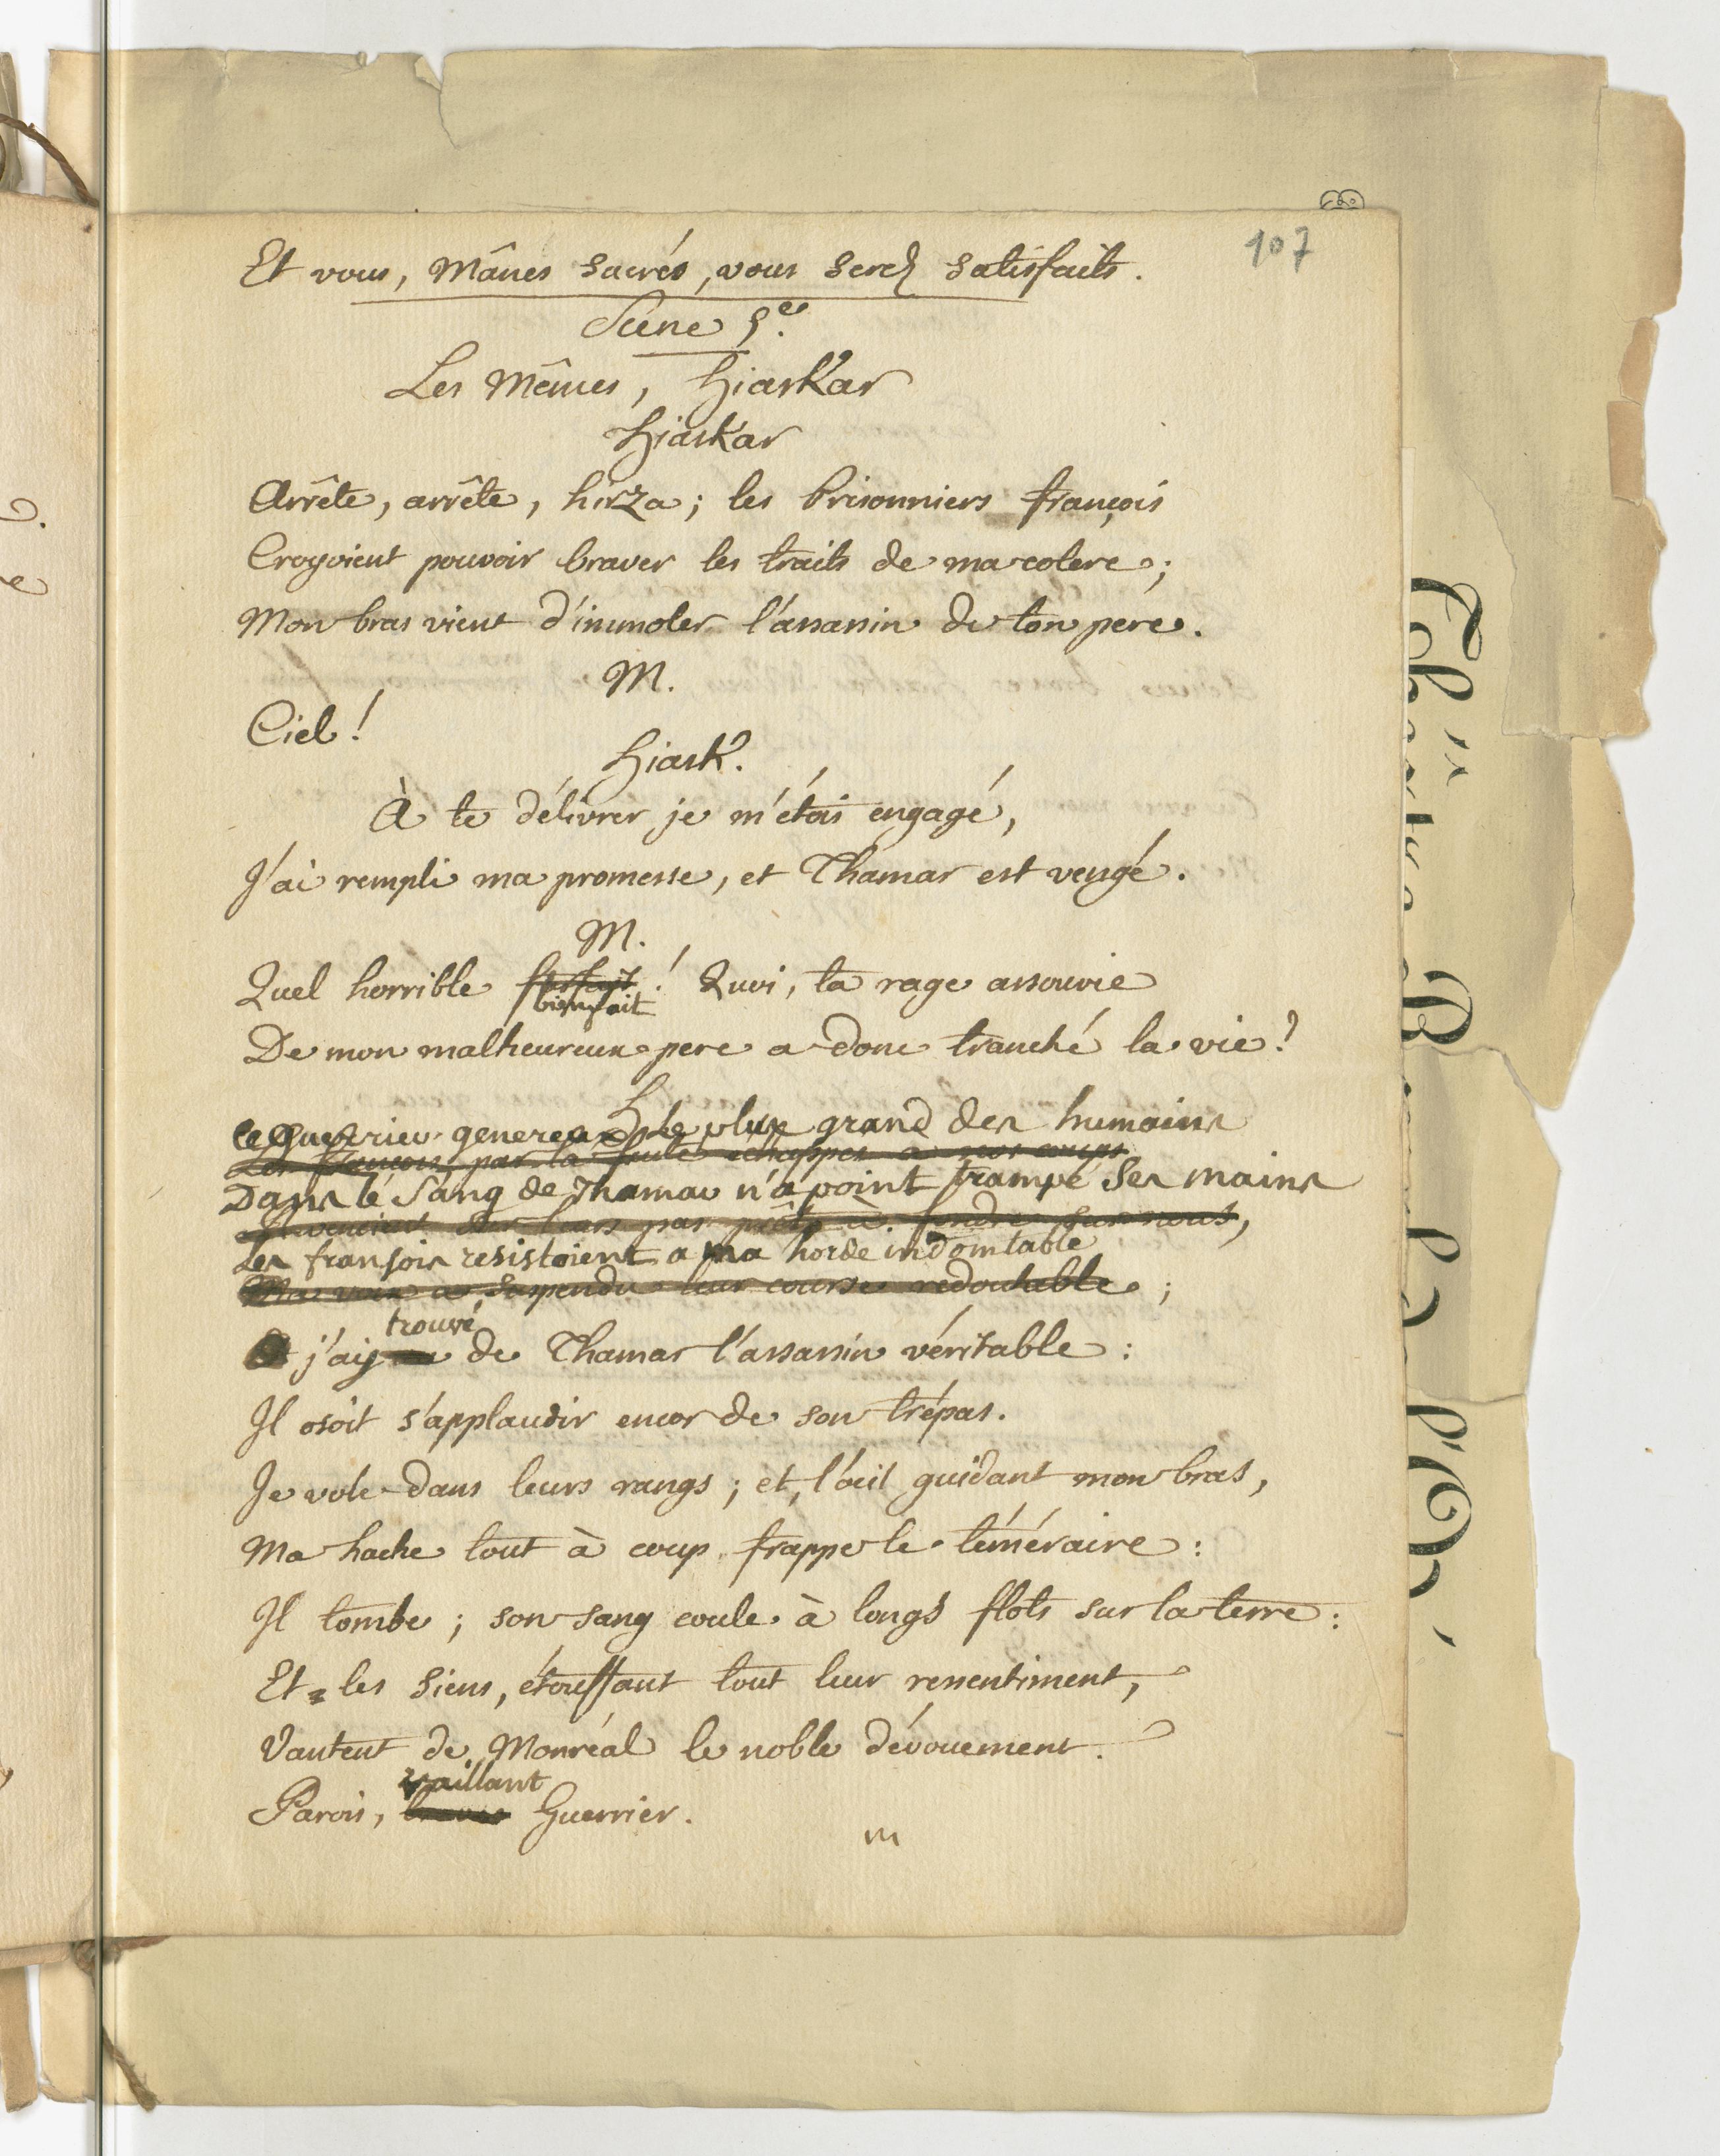 107
Et vous, Mânes sacrés, vous serez satisfaits.
Scene 5.e
Les Mêmes, hiaskar
hiaskar
Arrête, arrête, hirza; les prisonniers françois
Croyoient pouvoir braver les traits de ma colere;
Mon bras vient d'immoler l'assassin de ton pere.
M.
Ciel!
hiask.
À te délivrer je m'étois engagé,
J'ai rempli ma promesse, et Thamar est vengé.
M.
Quel horrible forfait! Quoi, ta rage assouvie
bienfait
De mon malheureux pere a donc tranché la vie?
h
Ce Guerrier genereux Le plus grand des humains
Les françois, par la fuite échappés à nos coups
Dans le Sang de Thamar n'a point trampé Ses mains
revenient sur leurs pas prêts à fondre sur nous,
Les franſois resistoient a ma horde indomtable
Ma voix a suspendu leur course redoutable;
trouvé
j'ay de Thamar l'assassin véritable:
Il osoit s'applaudir encor de son trépas.
Je vole dans leurs rangs; et, l'œil guidant mon bras,
Ma hache tout à coup frappe le téméraire:
Il tombe; son sang coule à longs flots sur la terre:
Et les Siens, étouffant tout leur ressentiment,
Vantent de Monréal le noble dévouement.
vaillant
Parois, brave Guerrier.
m